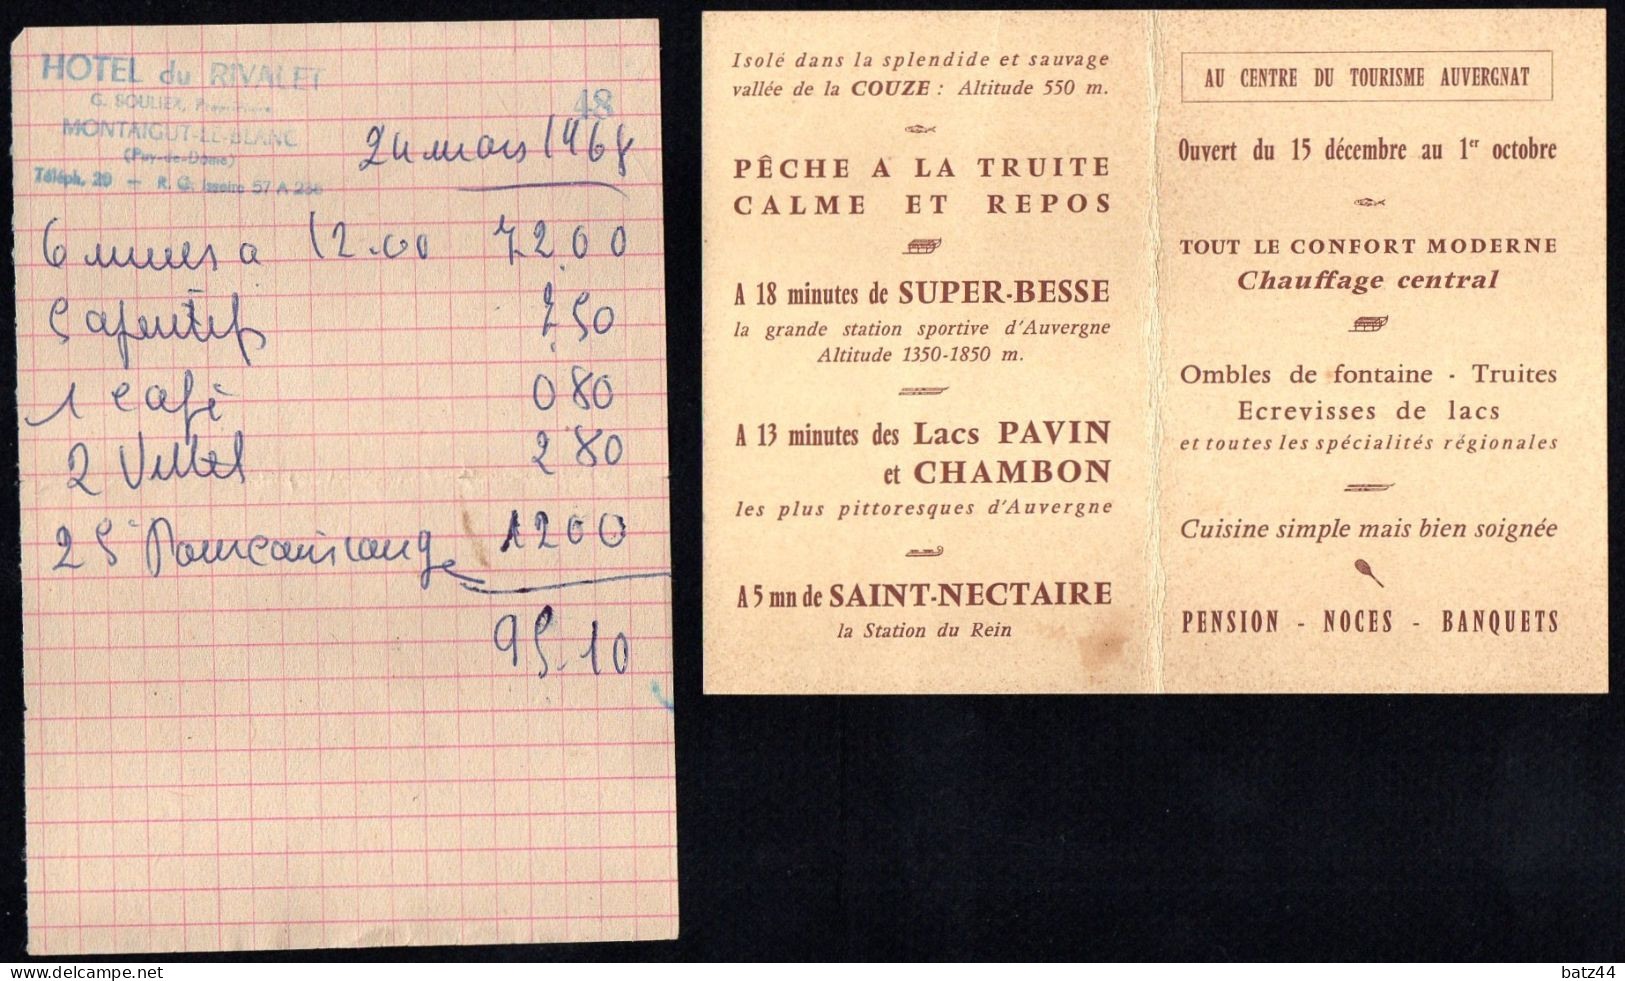 HOTEL du RIVALET
G. SOULIER, Propriétaire
48
MONTAIGUT-LE-BLANC
(Puy-de-Dôme)
Téléph. 20 — R. C. Issoire 57 A 236
24 mars 1968
6 menus a 12.00 72.00
5 aperitifs 7.50
1 café 0 80
2 Vittel 2 80
2 S Pourcain roug 12 00
95.10
Isolé dans la splendide et sauvage
vallée de la COUZE : Altitude 550 m.
PÊCHE A LA TRUITE
CALME ET REPOS
A 18 minutes de SUPER-BESSE
la grande station sportive d'Auvergne
Altitude 1350-1850 m.
A 13 minutes des Lacs PAVIN
et CHAMBON
les plus pittoresques d'Auvergne
A 5 mn de SAINT-NECTAIRE
la Station du Rein
AU CENTRE DU TOURISME AUVERGNAT
Ouvert du 15 décembre au 1er octobre
TOUT LE CONFORT MODERNE
Chauffage central
Ombles de fontaine - Truites
Ecrevisses de lacs
et toutes les spécialités régionales
Cuisine simple mais bien soignée
PENSION - NOCES - BANQUETS
batz44